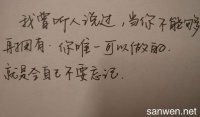 我曾听人说过,当你不能够
再拥有,你唯一可以做的.
就是令自己不要忘记.
sanwen.net